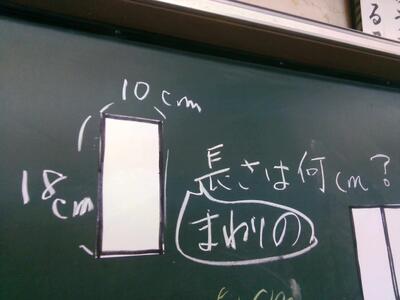 10cm
18cm
長さは何cm?
まわりの